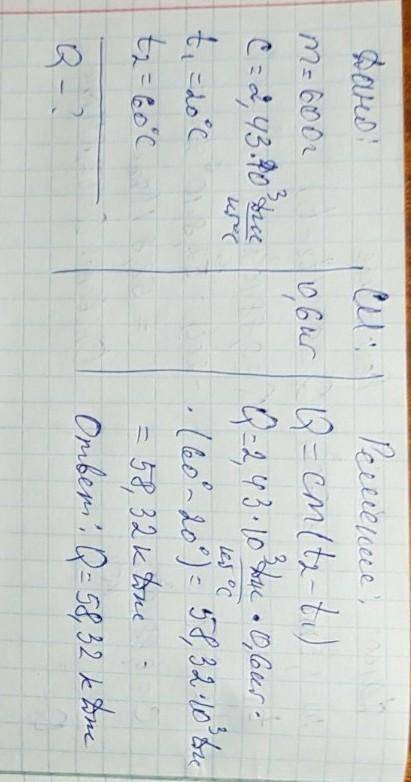 Дано:
m = 600г
c = 2,43·10³ Дж/кг°C
t₁ = 20°C
t₂ = 60°C
Q - ?
СИ:
0,6кг
Решение:
Q = cm(t₂ - t₁)
Q = 2,43·10³ Дж/кг°C · 0,6кг ·
· (60° - 20°) = 58,32·10³ Дж
= 58,32 кДж
Ответ: Q = 58,32 кДж